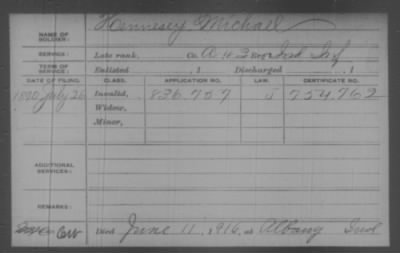 Hennesey Michael
NAME OF SOLDIER:
SERVICE: Late rank, Co. A 43 Reg't Ind Inf
TERM OF SERVICE: Enlisted , 1 Discharged , 1
DATE OF FILING. CLASS. APPLICATION NO. LAW. CERTIFICATE NO.
1890 July 26 Invalid, 836.757 J 754.762
Widow,
Minor,
ADDITIONAL SERVICES:
REMARKS:
Died June 11, 1916, at Albany Ind